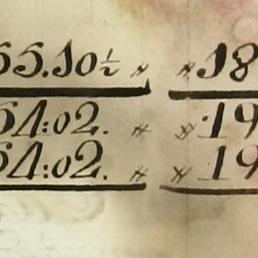 55.10½ 〃 〃 18
54:02. 〃 〃 19
54:02. 〃 〃 19